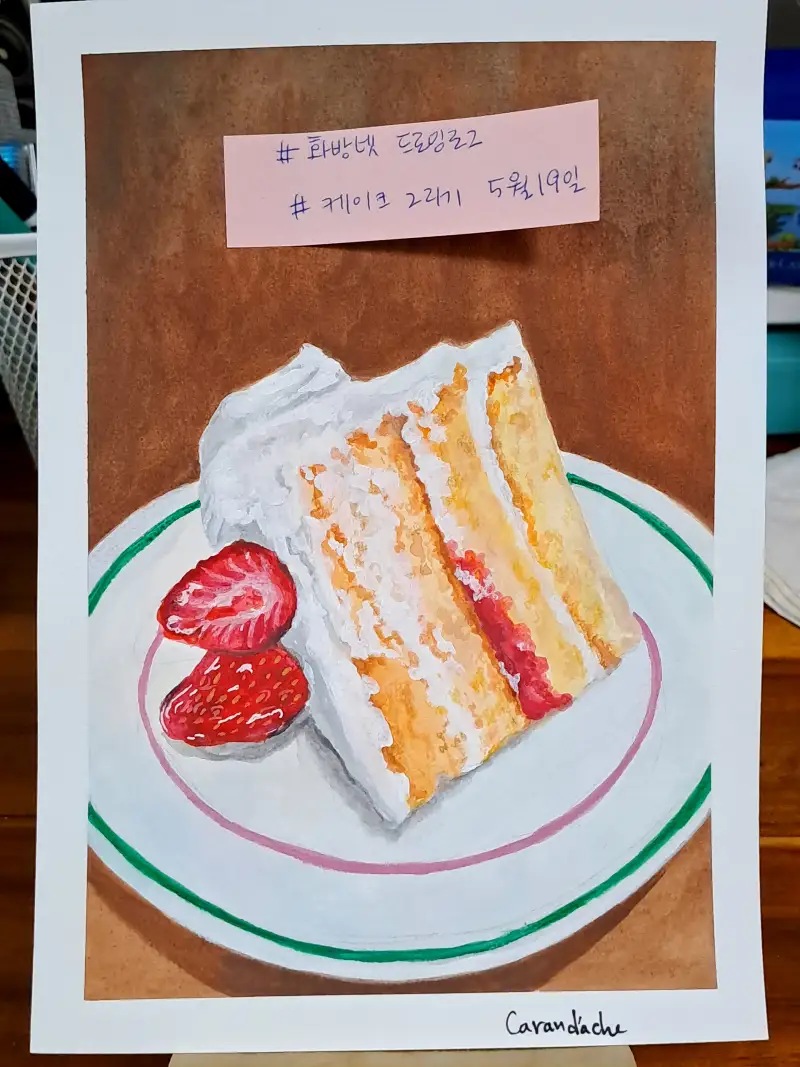 # 화방넷 드로잉로그
# 케이크 그리기 5월19일
Carand'ache